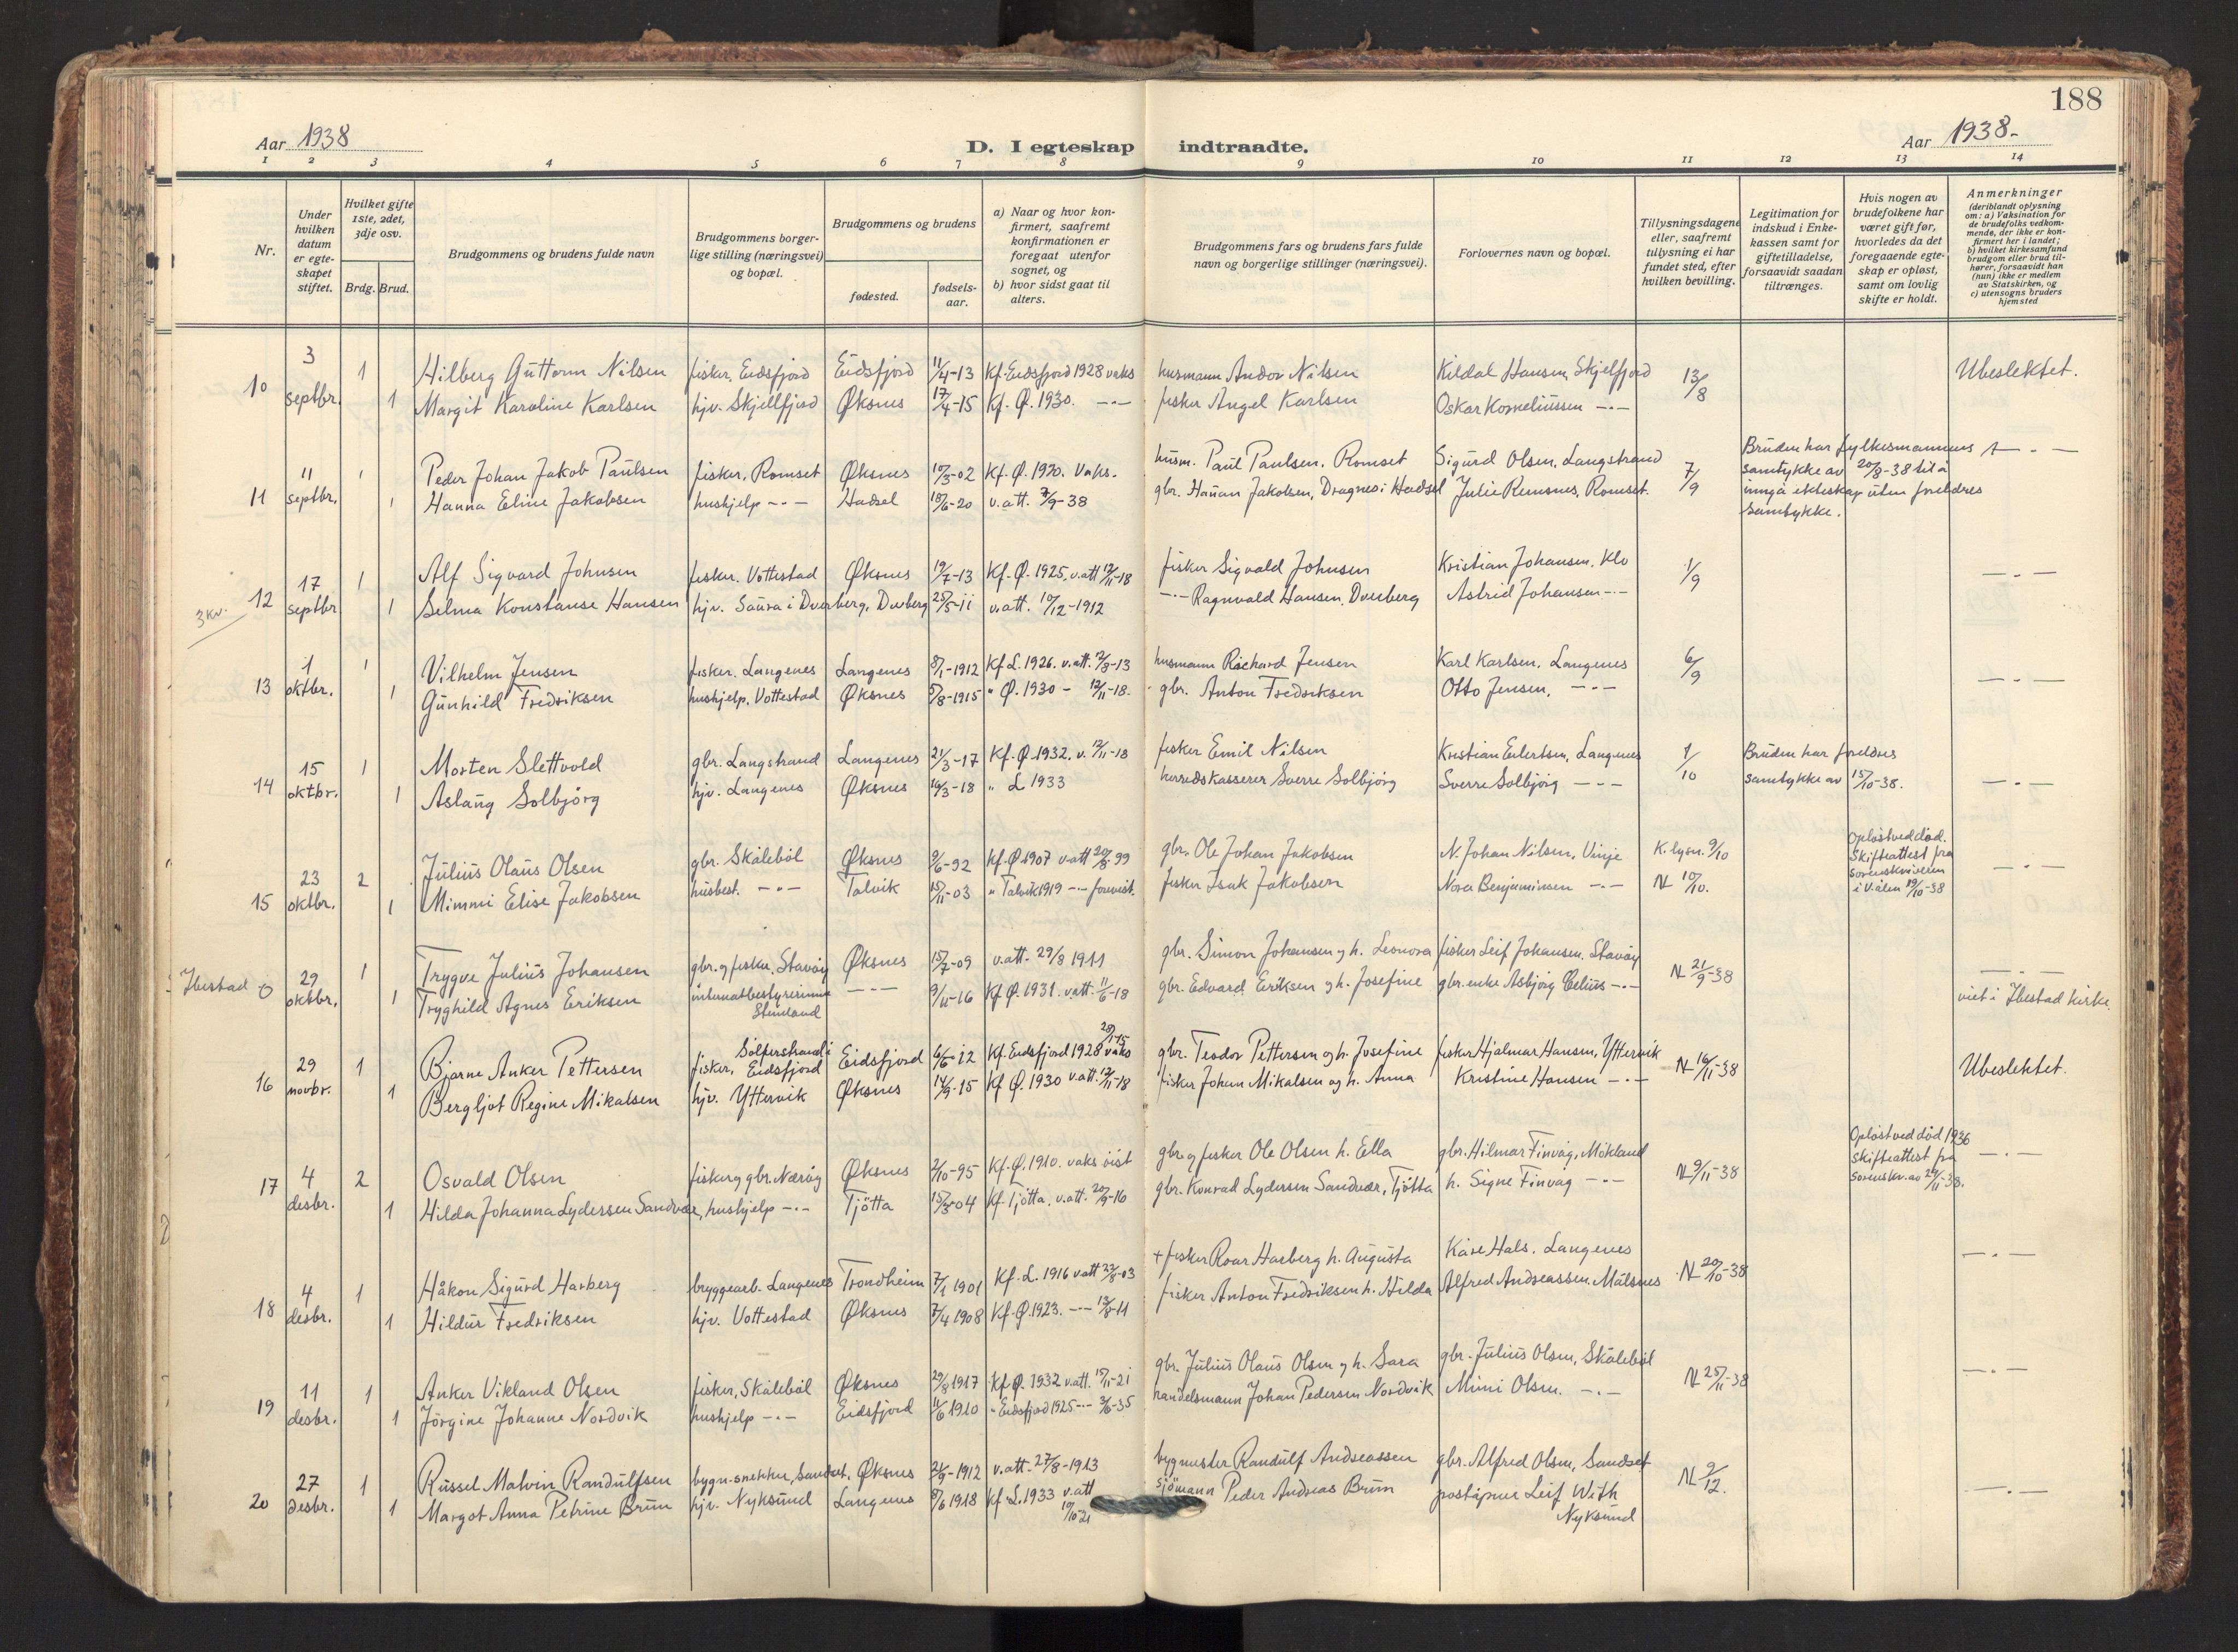 188
Aar 1938
D. I egteskap indtraadte.
Aar 1938-
1 2 3 4 5 6 7 8 9 10 11 12 13 14
Nr.
Under hvilken datum er egteskapet stiftet.
Hvilket gifte 1ste, 2det, 3dje osv.
Brdg. Brud.
Brudgommens og brudens fulde navn
Brudgommens borgerlige stilling (næringsvei) og bopæl.
Brudgommens og brudens
fødested.
fødselsaar.
a) Naar og hvor konfirmert, saafremt konfirmationen er foregaat utenfor sognet, og
b) hvor sidst gaat til alters.
Brudgommens fars og brudens fars fulde navn og borgerlige stillinger (næringsvei).
Forlovernes navn og bopæl.
Tillysningsdagene eller, saafremt tillysning ei har fundet sted, efter hvilken bevilling.
Legitimation for indskud i Enkekassen samt for giftetilladelse, forsaavidt saadan tiltrænges.
Hvis nogen av brudefolkene har været gift før, hvorledes da det foregaaende egteskap er opløst, samt om lovlig skifte er holdt.
Anmerkninger (deriblandt oplysning om: a) Vaksination for de brudefolks vedkommende, der ikke er konfirmert her i landet; b) hvilket kirkesamfund brudgom eller brud tilhører, forsaavidt han (hun) ikke er medlem av Statskirken, og c) utensogns bruders hjemsted
10 3 septbr. 1 Hilberg Guttorm Nilsen fisker, Eidsfjord Eidsfjord 11/4-13 Kf. Eidsfjord 1928 vaks husmann Andor Nilsen Kildal Hansen, Skjelfjord 13/8 Ubeslektet.
1 Margit Karoline Karlsen hjv. Skjellfjord Øksnes 17/4-15 Kf. Ø. 1930. -"- fisker Angel Karlsen Oskar Korneliussen -"-
11 11 septbr. 1 Peder Johan Jakob Paulsen fisker, Romset Øksnes 10/3-02 Kf. Ø. 1920. Vaks. husm. Paul Paulsen, Romset Sigurd Olsen, Langstrand 7/9 Bruden har fylkesmannens samtykke av 20/8-38 til å inngå ekteskap uten foreldres samtykke.
1 Hanna Eline Jakobsen hushjelp -"- Hadsel 10/6-20 v.att. 7/9-38 gbr. Hanan Jakobsen, Dragnes i Hadsel Julie Remsnes, Romset.
12 17 septbr. 1 Alf Sigvard Johnsen fisker. Vottestad Øksnes 19/7-13 Kf. Ø. 1925. v.att 12/11-18 fisker Sigvald Johnsen Kristian Johansen, Klo 1/9 -"-
3 kv.
1 Selma Konstanse Hansen hjv. Saura i Dverberg, Dverberg 25/5-11 v.att. 10/12-1912 -"- Ragnvald Hansen, Dverberg Astrid Johansen -"-
13 1 oktbr. 1 Vilhelm Jensen fisker. Langenes Langenes 8/1-1912 Kf L. 1926. v.att. 12/8-13 husmann Richard Jensen Karl Karlsen, Langenes 6/9 -"-
1 Gunhild Fredriksen hushjelp, Vottestad Øksnes 5/8-1915 " Ø. 1930 - 12/11-18. gbr. Anton Fredriksen Otto Jensen, -"-
14 15 oktbr. 1 Morten Slettvold gbr. Langstrand Langenes 21/3-17 Kf. Ø. 1932. v. 12/11-18 fisker Emil Nilsen Kristian Eilertsen, Langenes 1/10 Bruden har foreldres samtykke av 15/10-38. -"-
1 Aslaug Solbjørg hjv. Langenes Øksnes 16/3-18 " L 1933 herredskasserer Sverre Solbjørg Sverre Solbjørg -"-
15 23 oktbr. 2 Julius Olaus Olsen gbr. Skålebøl Øksnes 9/6-92 Kf. Ø 1907 v.att 20/8-99 gbr. Ole Johan Jakobsen N. Johan Nilsen, Vinje K. lysn. 9/10 Opløst ved død. Skifteattest fra sorenskriveren i V.ålen 19/10-38 -"-
1 Mimmi Elise Jakobsen husbest. -"- Talvik 15/11-03 " Talvik 1919 -"- forevist. fisker Isak Jakobsen Nora Benjaminsen -"- N 10/10.
Ibestad
29 oktbr. 1 Trygve Julius Johansen gbr. og fisker, Stavøy Øksnes 15/7-09 v.att. 29/8 1911 gbr. Simon Johansen og h. Leonora fisker Leif Johansen, Stavøy N 21/9-38 -"-
1 Tryghild Agnes Eriksen internatbestyrerinne Steinland -"- 9/11-16 Kf Ø. 1931. v.att. 11/6-18 gbr. Edvard Eriksen og h. Josefine gbr. enke Asbjørg Celius -"- viet i Ibestad kirke.
16 29 novbr. 1 Bjarne Anker Pettersen fisker, Sålferstrand i Eidsfjord Eidsfjord 6/6-12 Kf. Eidsfjord 1928 vaks gbr. Teodor Pettersen og h. Josefine fisker Hjalmar Hansen, Yttervik N 16/11-38 Ubeslektet.
1 Bergljot Regine Mikalsen hjv. Yttervik Øksnes 14/9-15 Kf Ø. 1930 v.att. 12/11-18 fisker Johan Mikalsen og h. Anna Kristine Hansen -"-
17 4 desbr. 2 Osvald Olsen fisker og gbr. Nærøy Øksnes 2/10-95 Kf. Ø. 1910. vaks vist gbr. og fisker Ole Olsen h. Ella gbr. Hilmar Finvåg, Mökland N 9/11-38 Opløst ved død 1936 Skifteattest fra sorenskr. av 29/11-38. -"-
1 Hilda Johanna Lydersen Sandvær, hushjelp -"- Tjötta 15/3-04 Kf. Tjötta, v.att. 20/9-16 gbr. Konrad Lydersen Sandvær, Tjötta h. Signe Finvåg -"-
18 4 desbr. 1 Håkon Sigurd Harberg bryggearb. Langenes Trondheim 7/1 1901 Kf. L. 1916 v.att 22/8-03 + fisker Roar Harberg h. Augusta Kåre Hals. Langenes N 20/10-38 -"-
1 Hildur Fredriksen hjv. Vottestad Øksnes 7/4 1908 Kf. Ø. 1923. -"- 13/8-11 fisker Anton Fredriksen h. Hilda Alfred Andreassen. Målsnes
19 11 desbr. 1 Anker Vikland Olsen fisker, Skålebøl Øksnes 29/8 1917 Kf. Ø. 1932 v.att. 15/11-21 gbr. Julius Olaus Olsen og h. Sara gbr. Julius Olsen, Skålebøl N 25/11-38 -"-
1 Jörgine Johanne Nordvik hushjelp -"- Eidsfjord 11/6 1910 " Eidsfjord 1925 -"- 3/6-35 handelsmann Johan Pedersen Nordvik Mimi Olsen. -"-
20 27 desbr. 1 Russel Malvin Randulfsen bygn.snekker, Sandset, Øksnes 21/9-1912 v.att. 27/8-1913 bygmester Randulf Andreassen gbr. Alfred Olsen, Sandset N 9/12. -"-
1 Margot Anna Petrine Brun hjv. Nyksund Langenes 8/6 1918 Kf. L. 1933 v.att 19/10-21 sjömann Peder Andreas Brun poståpner Leif With Nyksund